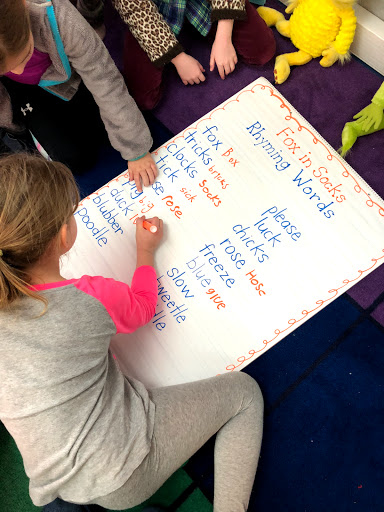 Fox in Socks
Rhyming Words
fox Box
tricks bricks
clocks Socks
sick
rose
my
duck
blubber
poodle
please
luck
chicks
rose Hose
freeze
blue glue
slow